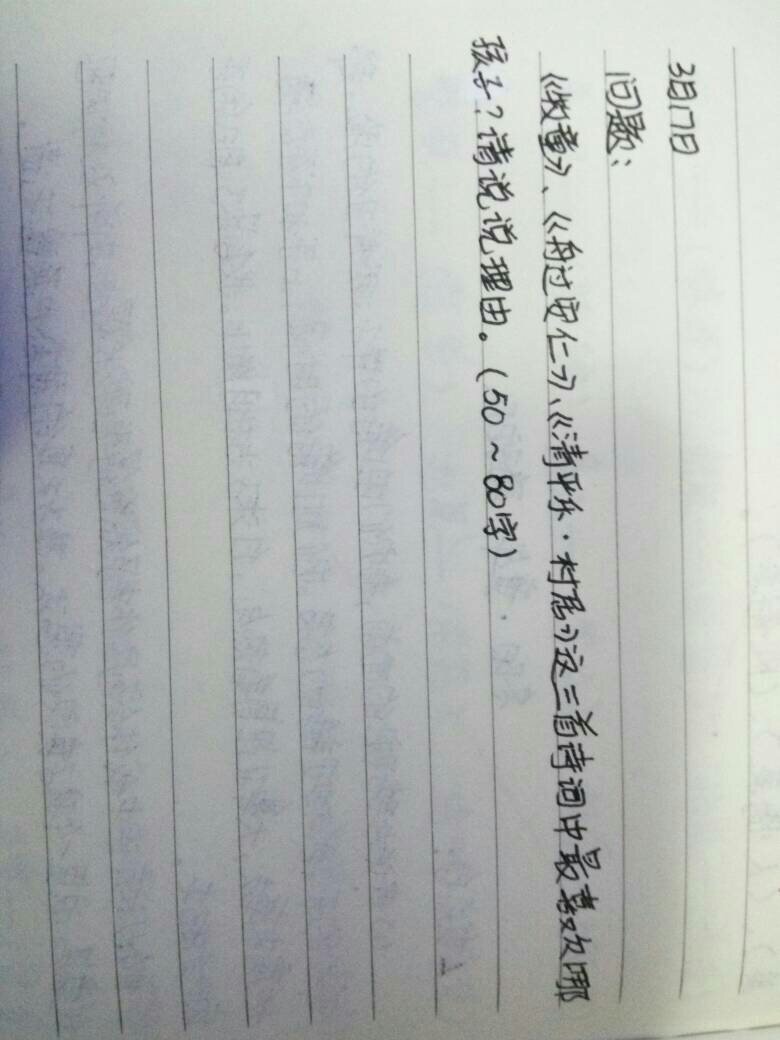 3月17日
问题：
《牧童》、《舟过安仁》、《清平乐·村居》这三首诗词中最喜欢哪
孩子？请说说理由。（50～80字）